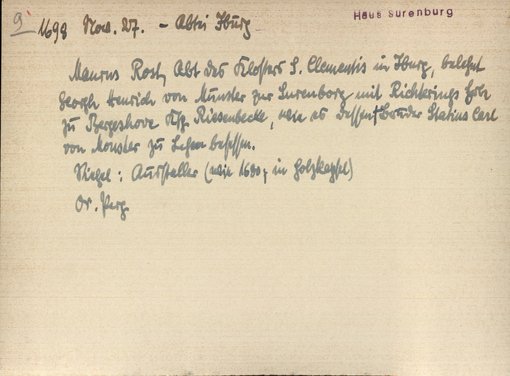 9
Haus Surenburg
1698 Nov. 27. - Abtei Iburg
Maurus Rost, Abt des Klosters S. Clementis in Iburg, belehnt
Georgh Henrich von Münster zur Surenborg mit Richterings Erbe
zu Bergeshove Ksp. Riesenbeck, wie es dessen † Bruder Statius Carl
von Monster zu Lehen besessen.
Siegel: Aussteller (wie 1680, in Holzkapsel)
Or. Perg.